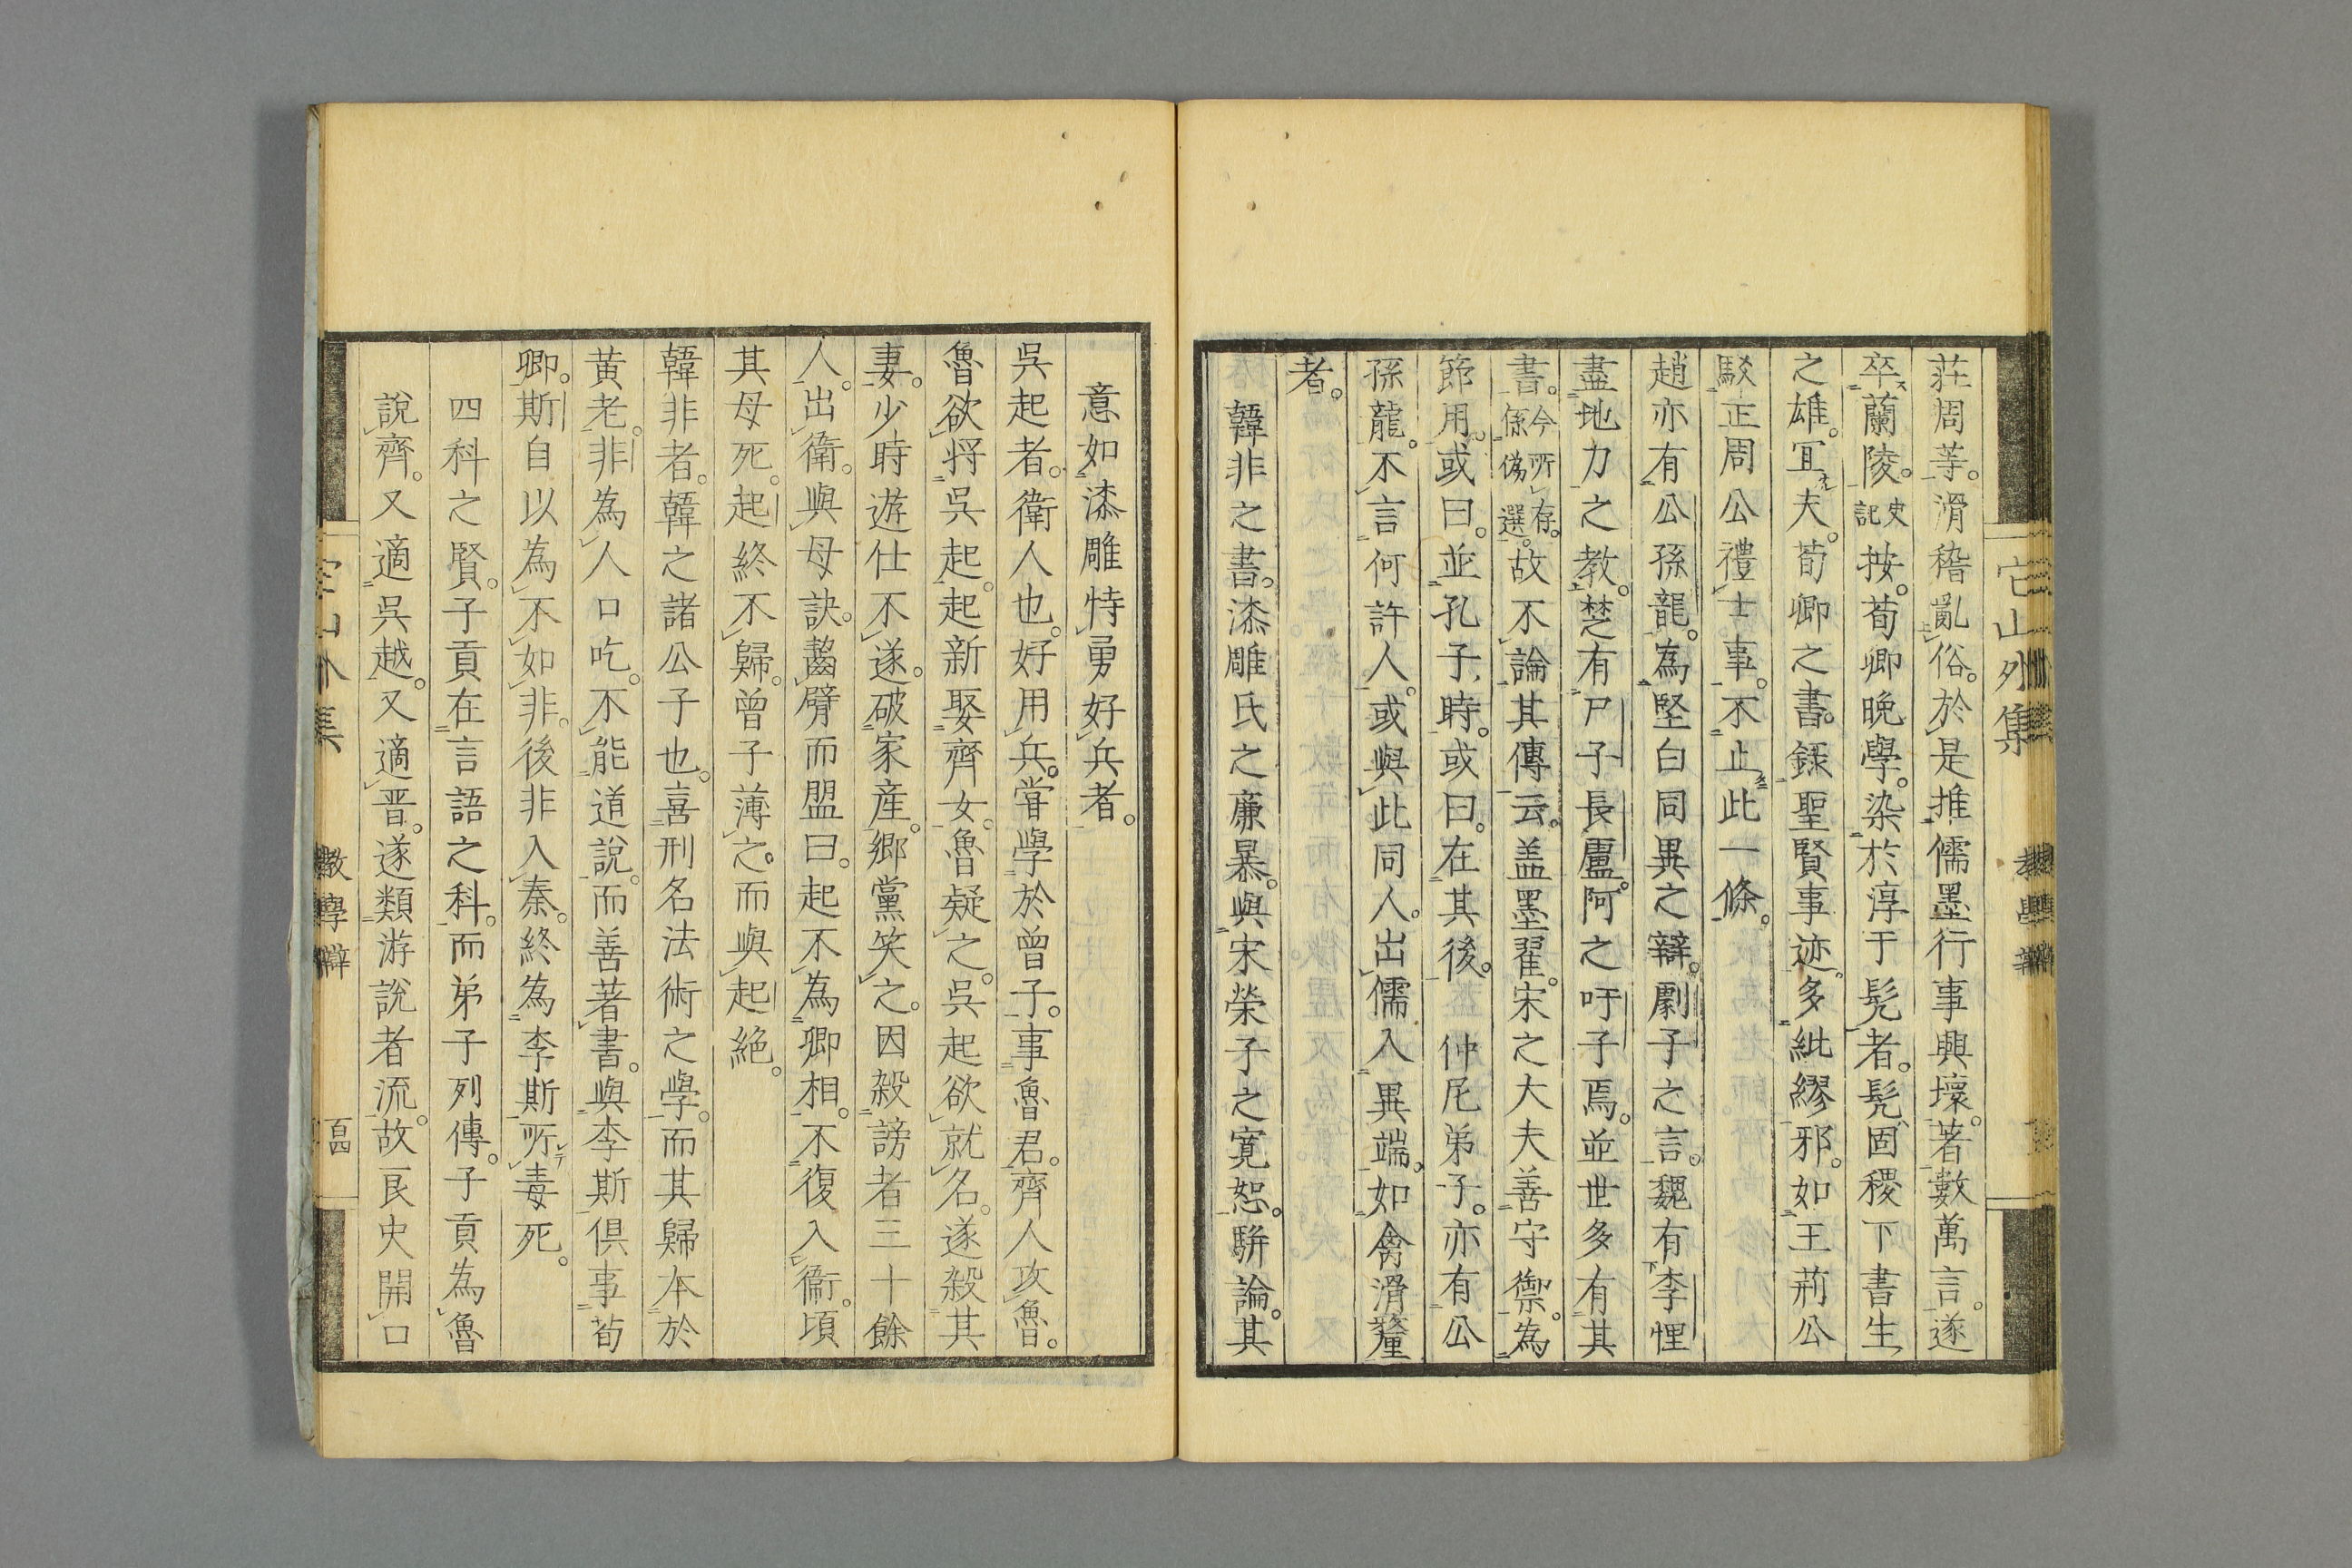 莊周等。滑稽亂俗。於是推儒墨行事興壞。著數萬言。遂
卒蘭陵。史記按。荀卿晚學。染於淳于髡者。髡固稷下書生
之雄。冝夫。荀卿之書。錄聖賢事迹。多紕繆邪。如王荊公
駁正周公禮士事。不止此一條。
趙亦有公孫龍。為堅白同異之辯。劇子之言。魏有李悝
盡地力之教。楚有尸子長盧。阿之吁子焉。並世多有其
書。今所存。係偽選。故不論其傳云。盖墨翟。宋之大夫善守禦。為
節用。或曰。並孔子時。或曰。在其後。 仲尼弟子。亦有公
孫龍。不言何許人。或與此同人。出儒入異端。如禽滑釐
者。
韓非之書。漆雕氏之廉暴。與宋榮子之寬恕。駢論。其
意如漆雕恃勇好兵者。
吳起者。衛人也。好用兵。甞學於曾子。事魯君。齊人攻魯。
魯欲将吳起。起新娶齊女。魯疑之。吳起欲就名。遂殺其
妻。少時遊仕不遂。破家産。鄉黨笑之。因殺謗者三十餘
人。出衛。與母訣。齧臂而盟曰。起不為卿相。不復入衞。頃
其母死。起終不歸。曾子薄之。而與起絕。
韓非者。韓之諸公子也。喜刑名法術之學。而其歸本於
黃老。非為人口吃。不能道說。而善著書。與李斯俱事荀
卿。斯自以為不如非。後非入秦。終為李斯所毒死。
四科之賢。子貢在言語之科。而弟子列傳。子貢為魯
說齊。又適吳越。又適晋。遂類游說者流。故良史開口
它山外集
教學辯
百四